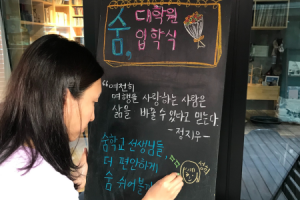 숨, 대학원
입학식
"여전히
여행을 사랑하는 사람은
삶을 바꿀 수 있다고 믿는다"
- 정지우 -
숨학교 선생님들,
더 편안하게
숨 쉬어볼